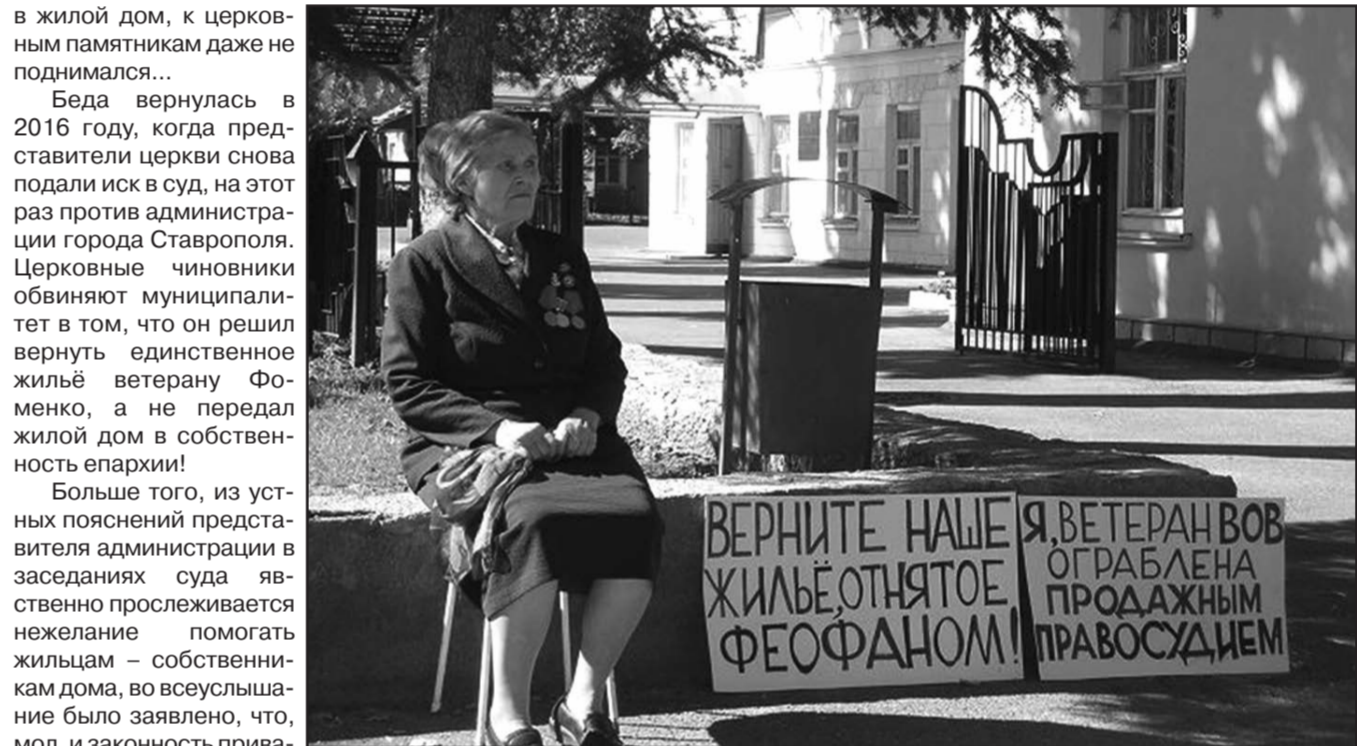 в жилой дом, к церков-
ным памятникам даже не
поднимался...
Беда вернулась в
2016 году, когда пред-
ставители церкви снова
подали иск в суд, на этот
раз против администра-
ции города Ставрополя.
Церковные чиновники
обвиняют муниципали-
тет в том, что он решил
вернуть единственное
жильё ветерану Фо-
менко, а не передал
жилой дом в собствен-
ность епархии!
Больше того, из уст-
ных пояснений предста-
вителя администрации в
заседаниях суда яв-
ственно прослеживается
нежелание помогать
жильцам – собственни-
кам дома, во всеуслыша-
ние было заявлено, что,
мол, и законность прива-
ВЕРНИТЕ НАШЕ
ЖИЛЬЁ, ОТНЯТОЕ
ФЕОФАНОМ!
Я, ВЕТЕРАН ВОВ
ОГРАБЛЕНА
ПРОДАЖНЫМ
ПРАВОСУДИЕМ